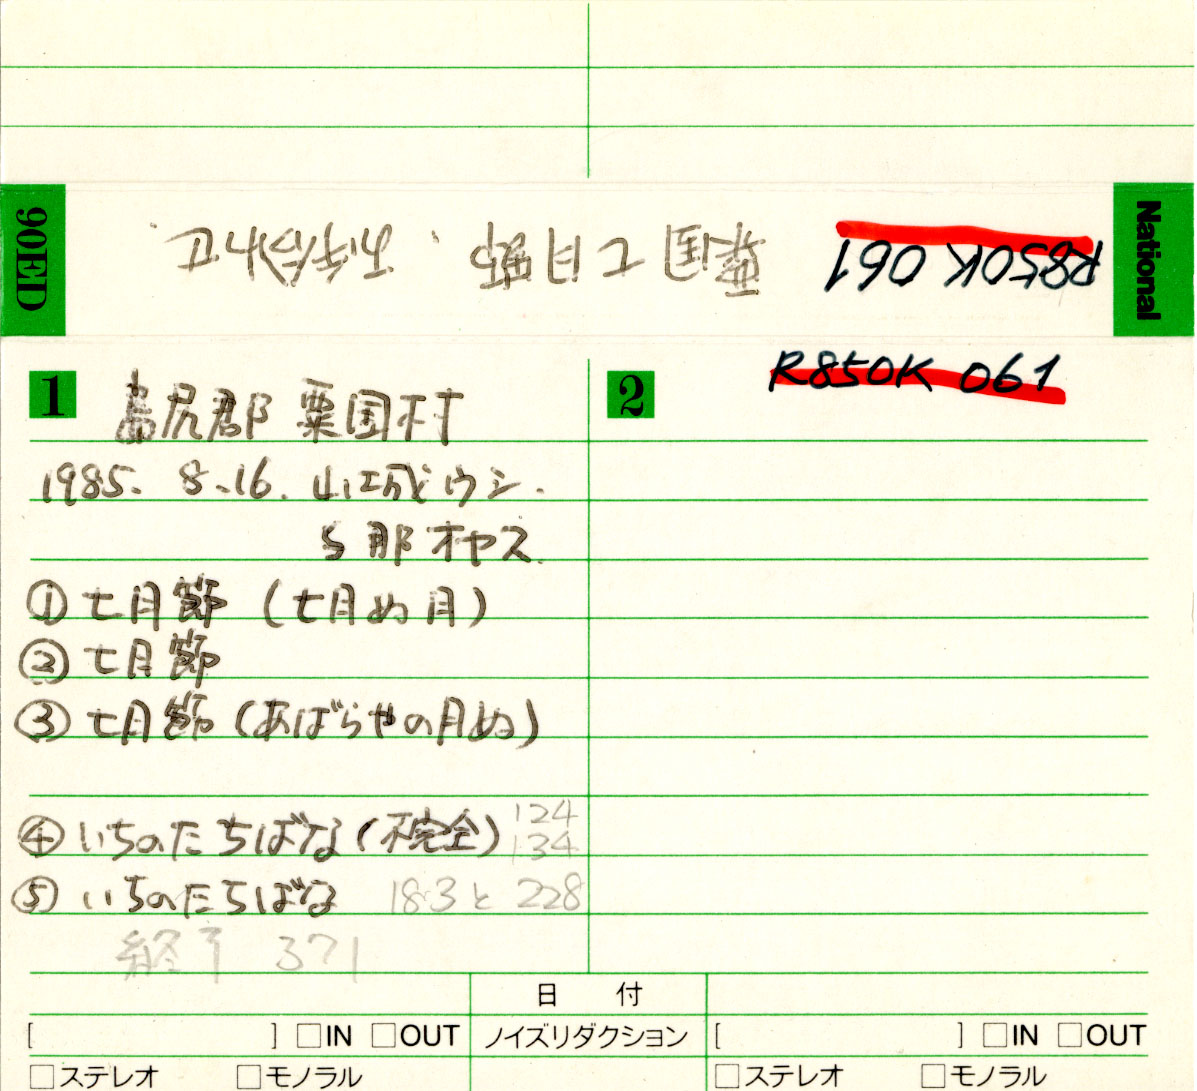 90ED
National
粟国 七月節、お手合わせ
R850K 061
1
2
R850K 061
島尻郡 粟国村
1985. 8.16. 山城ウシ.
与那オヤス
① 七月節 (七月ぬ月)
② 七月節
③ 七月節 (あばらやの月ぬ)
④ いちのたちばな (不完全) 124
134
⑤ いちのたちばな 183と228
終了 371
日 付
[ ] □IN □OUT
ノイズリダクション
[ ] □IN □OUT
□ステレオ □モノラル
□ステレオ □モノラル